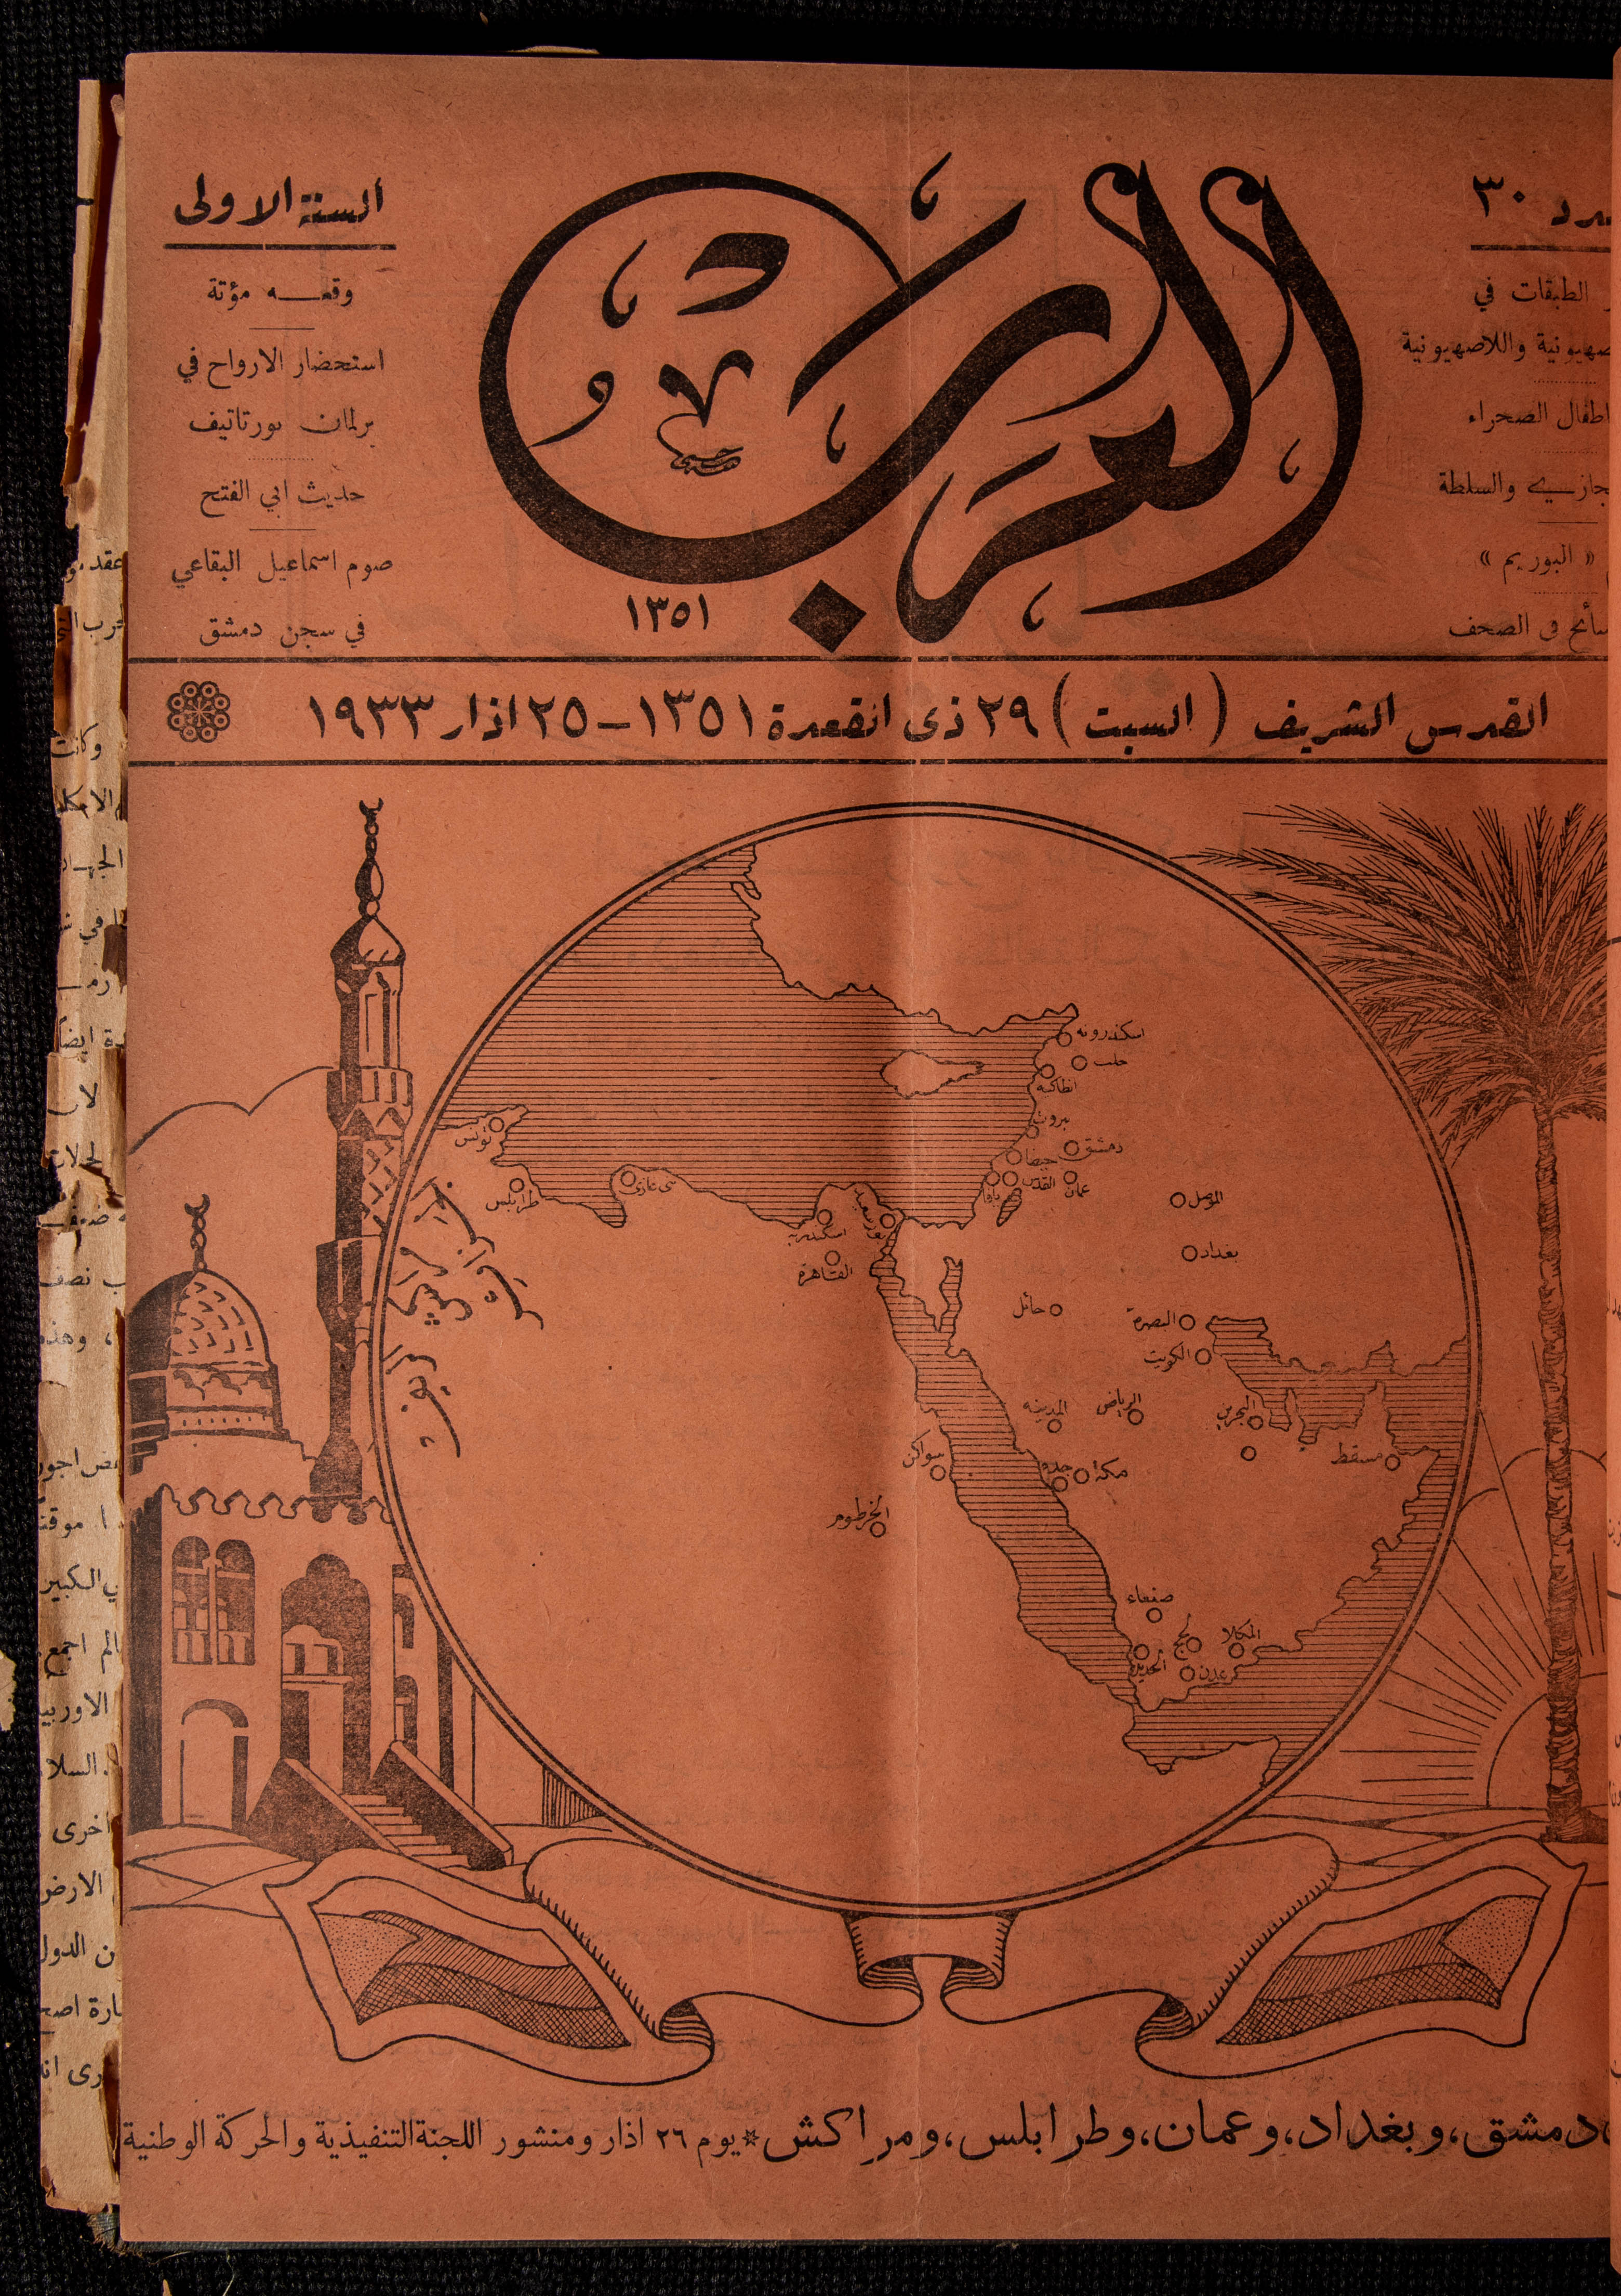 العرب
١٣٥١
عدد ٣٠
الطبقات في
صهيونية واللاصهيونية
اطفال الصحراء
والسلطة
« البوريم »
في الصحف
السنة الاولى
وقعـــه مؤتة
استحضار الارواح في
برلمان بورتاتيف
حديث ابي الفتح
صوم اسماعيل البقاعي
في سجن دمشق
القدس الشريف ( السبت ) ٢٩ ذى القعدة ١٣٥١ – ٢٥ اذار ١٩٣٣
اسكندرونه
حلب
انطاكيه
بيروت
دمشق
حيفا
القدس
يافا
عمان
تونس
طرابلس
بني غازي
اسكندريه
بور سعيد
القاهرة
الموصل
بغداد
حائل
البصرة
الكويت
المدينه
الرياض
البحرين
مسقط
سواكن
جده
مكة
الخرطوم
صنعاء
لحج
المكلا
الحديدة
عدن
دمشق، وبغداد، وعمان، وطرابلس، ومراكش * يوم ٢٦ اذار ومنشور اللجنة التنفيذية والحركة الوطنية